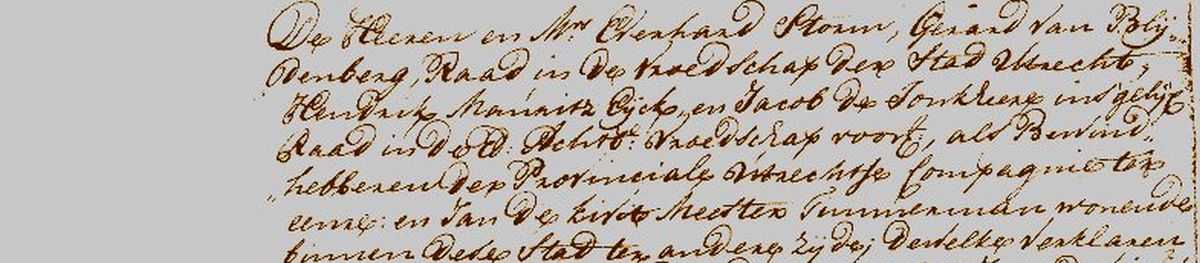 De Heeren en Mrs Everhard Storm, Gerard van Blij„
denberg, Raad in de vroedschap der Stad Utrecht,
Hendrik Maurits Eyck, en Jacob de Jonkheere ins'gelijx
Raad in de Ed: Achtb: vroedschap voorst:, als Bewind„
„hebberen der Provinciale Utrechtse Compagnie ter
eenre: en Jan de Meester Timmerman wonende
binnen dese Stad ter andere zijde; dewelke verklaren